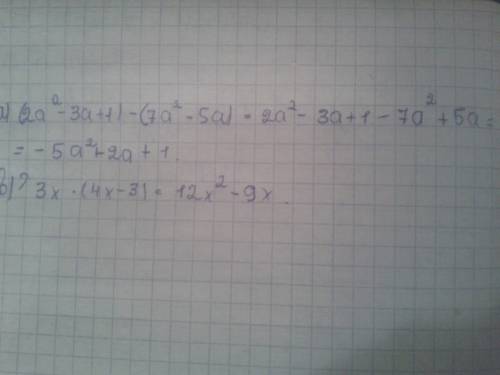 a) (2a² - 3a + 1) - (7a² - 5a) = 2a² - 3a + 1 - 7a² + 5a =
= - 5a² + 2a + 1.
b) ? 3x · (4x - 3) = 12x² - 9x.